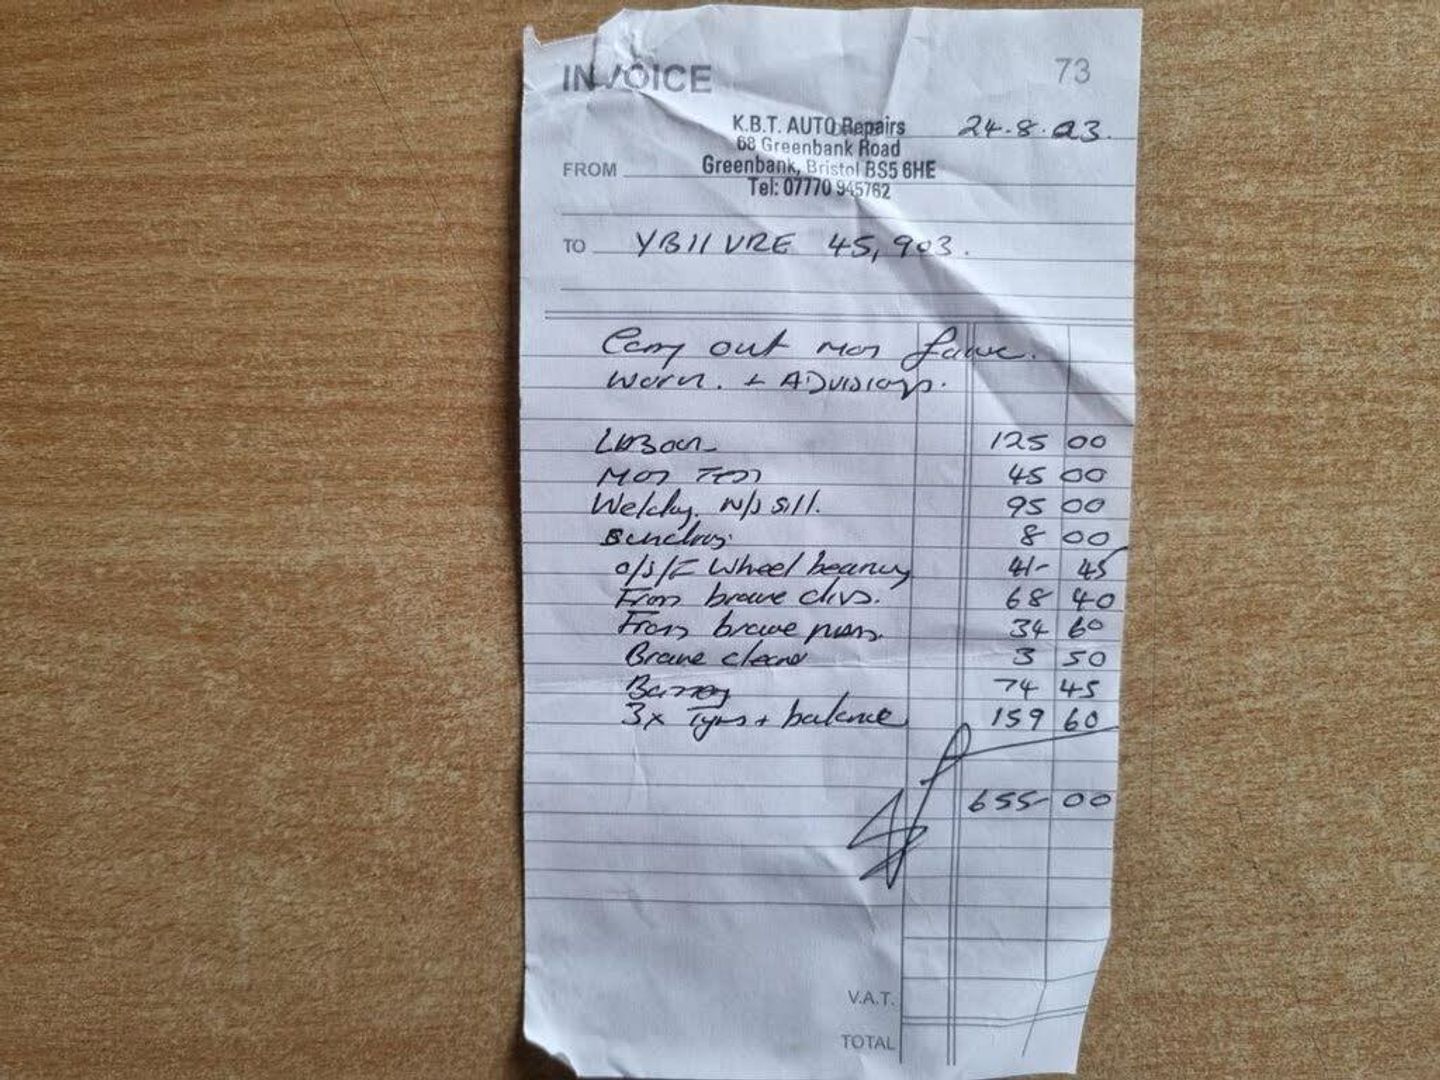 INVOICE 73
K.B.T. AUTO Repairs 24.8.23.
68 Greenbank Road
FROM Greenbank, Bristol BS5 6HE
Tel: 07770 945762
TO YB11 VRE 45,903.
Carry out MOT failure.
work. + ADVISIORYS.
LABOUR 125 00
MOT TEST 45 00
Welding. N/S Sill. 95 00
Sundrys. 8 00
O/S/F Wheel bearing 41- 45
Front brake discs. 68 40
Front brake pads. 34 60
Brake cleaner 3 50
Battery 74 45
3x Tyres + balance 159 60
655- 00
V.A.T.
TOTAL